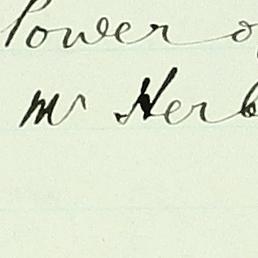 Power o
Mr Herb